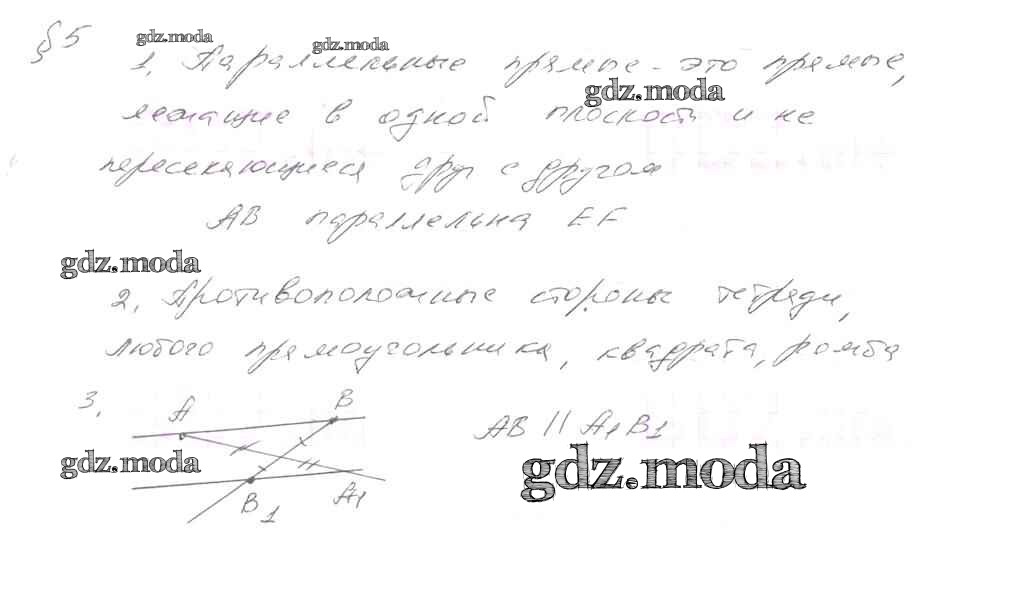 §5
gdz.moda
gdz.moda
1. Параллельные прямые - это прямые,
gdz.moda
лежащие в одной плоскости и не
пересекающиеся друг с другом
AB параллельна EF
gdz.moda
2. Противоположные стороны тетради,
любого прямоугольника, квадрата, ромба
3.
A
B
AB || A1B1
gdz.moda
gdz.moda
B1
A1